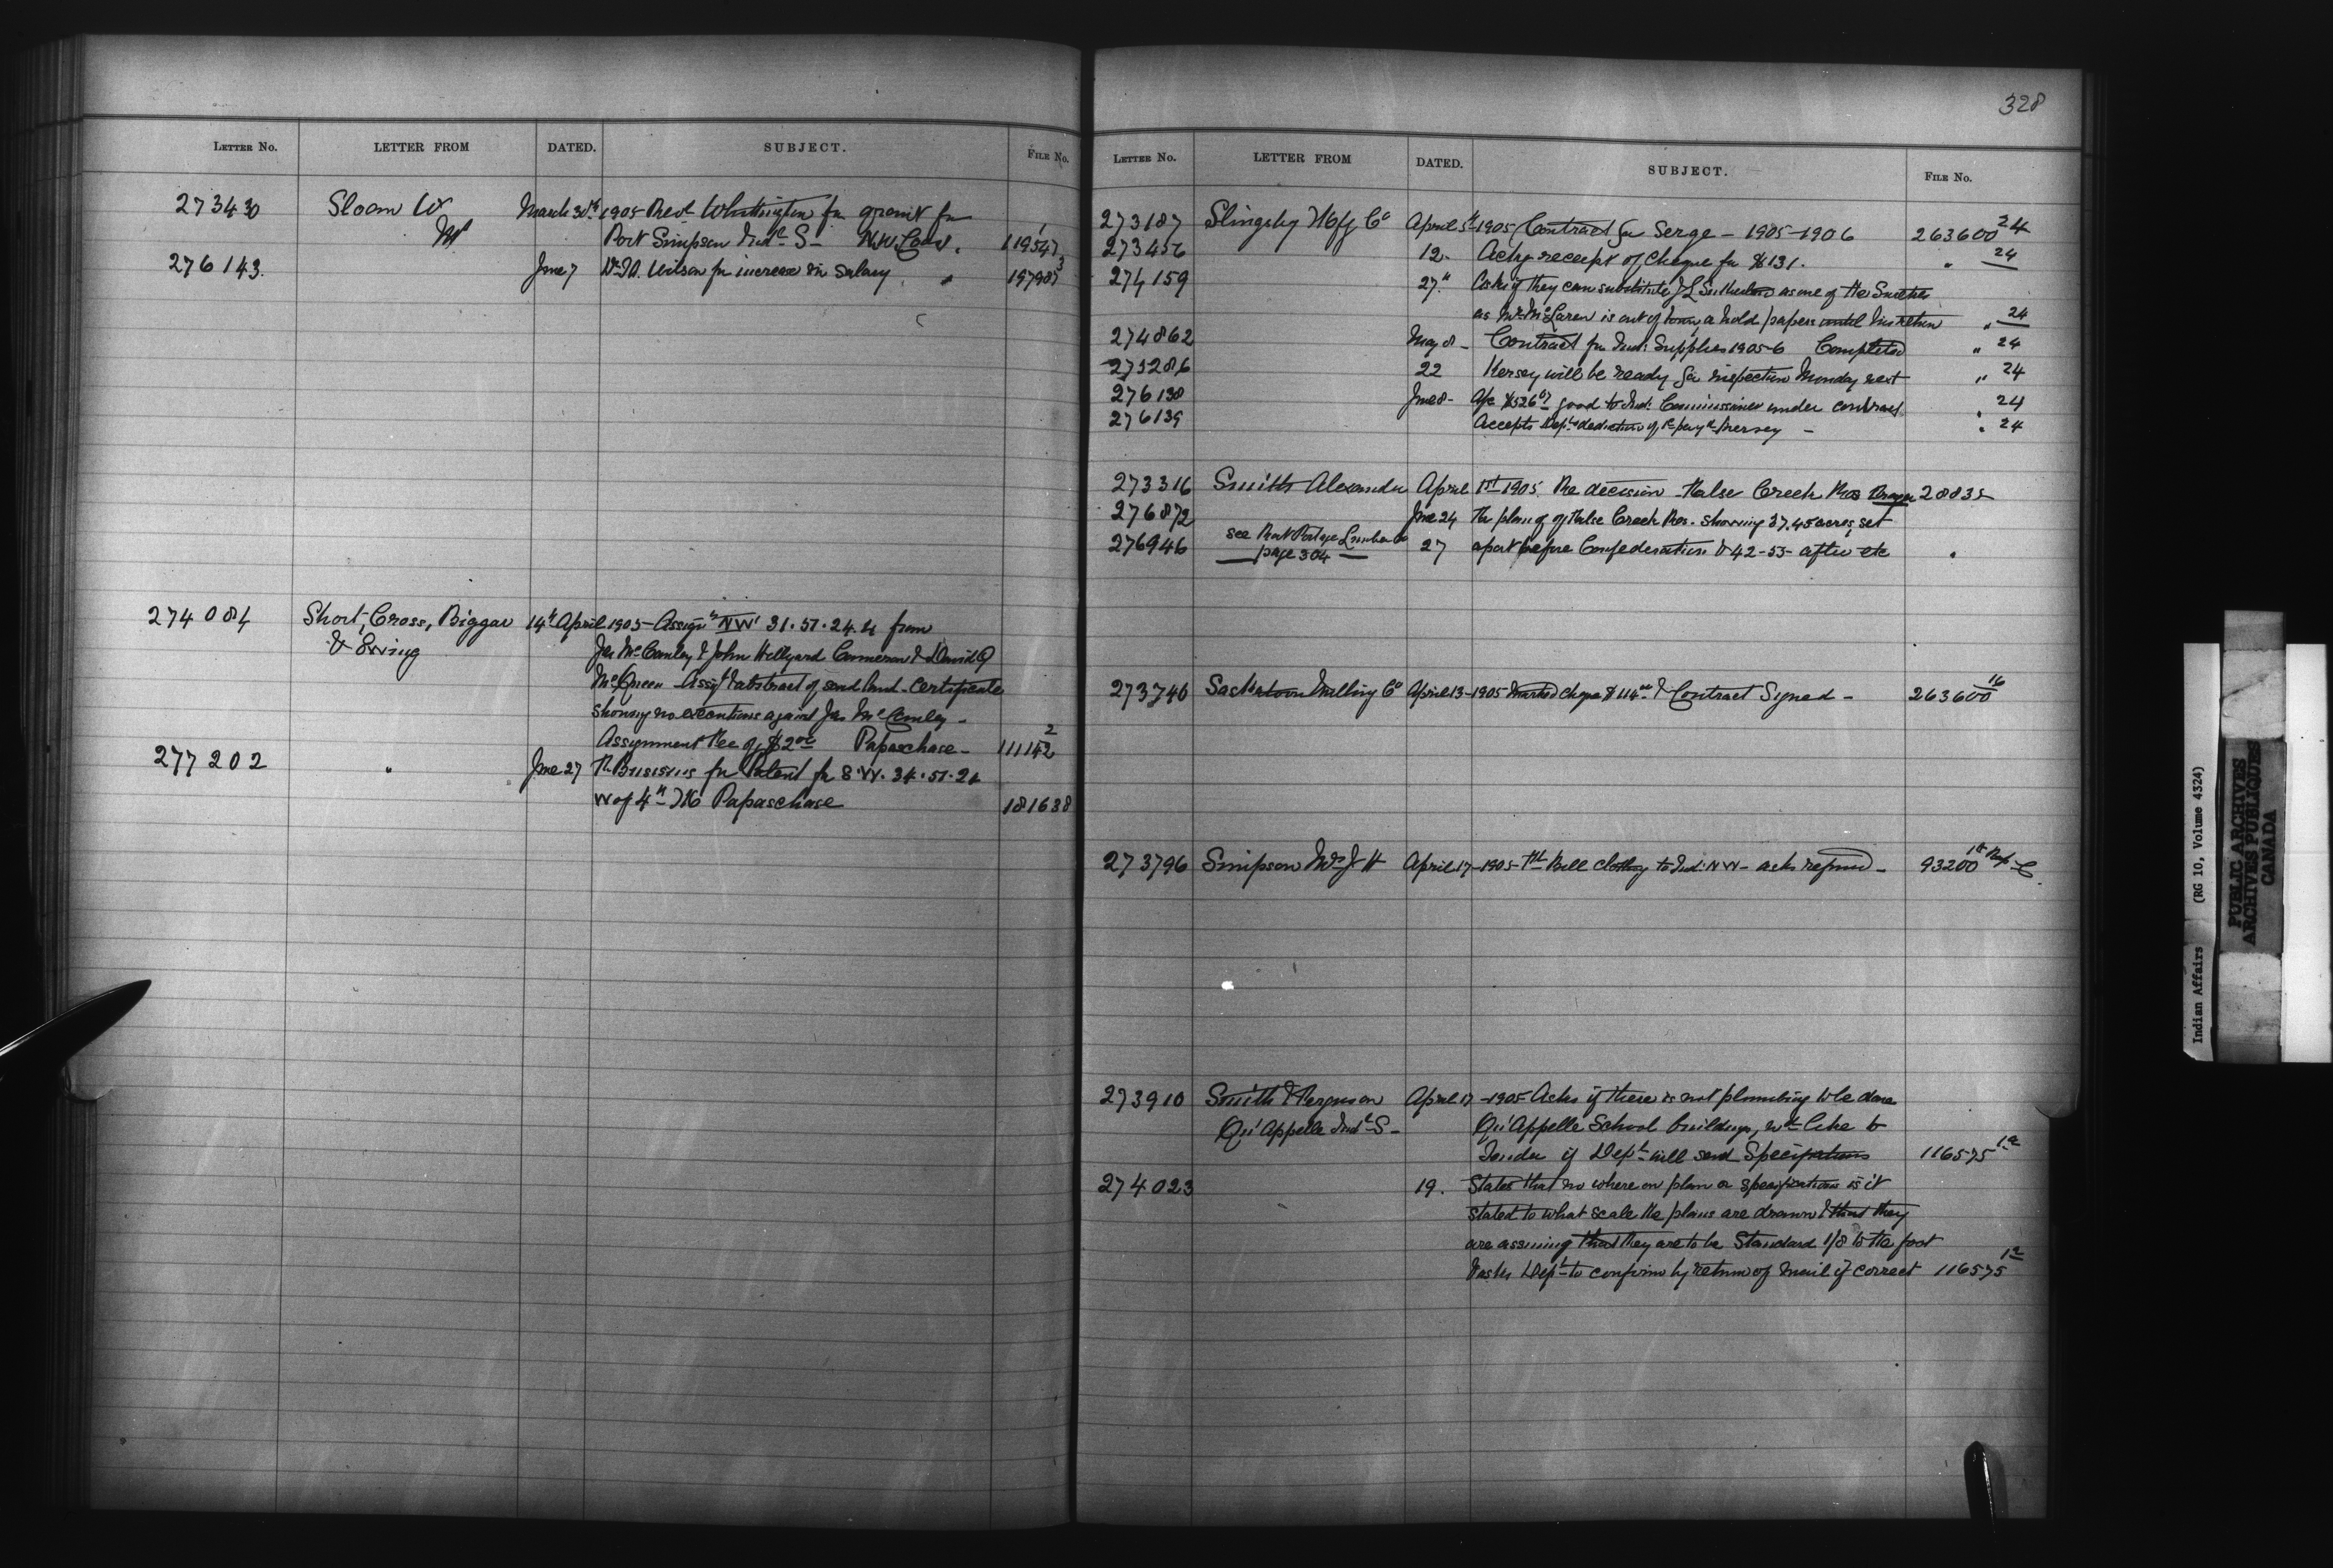 LETTER NO. LETTER FROM DATED. SUBJECT. FILE NO.
273430 Sloan W March 30th 1905 Revd Whittington for grant for
Port Simpson Indl S - N.W. Coast. 119547 1
276143. June 7 Dr Wilson for increase in salary " 197987 3
274084 Short, Cross, Biggar 14th April 1905 - Assigt NW 31.51.24.4 from
& Ewing Jas McCauley & John Hillyard Cameron & David Q
McQueen - Assigt & abstract of said land - Certificate
showing no executions against Jas McCauley -
Assignment Fee of $2.00 Papaschase - 111142 2
277202 " June 27 for Patent for S.W. 34.51.24
W of 4th M Papaschase 181638
328
LETTER NO. LETTER FROM DATED. SUBJECT. FILE NO.
273187 Slingsby Mfg Co April 5th 1905 Contract for Serge - 1905-1906 263600 24
273456 12 - Ackg receipt of cheque for $131. " 24
274159 27th Asks if they can substitute J L Sutherland as one of the Sureties
as Mr McLaren is out of town or hold papers until his return " 24
274862 May 8 - Contract for Ind: Supplies 1905-6 Completed " 24
275286 22 Kersey will be ready for inspection Monday next " 24
276138 June 8 - A/c $526 good to Ind: Commissioner under contract " 24
276139 Accepts Dept's deduction of Kersey - " 24
273316 Smith Alexander April 1st 1905 Re decision False Creek Res 28835
276872 June 24 Re plan of False Creek Res. showing 37.45 acres set
276946 see Rat Portage Lumber Co 27 apart before Confederation & 42-53 - after etc "
page 304
273740 Saskatoon Milling Co April 13 - 1905 Marked cheque $114 & Contract Signed - 263600 16
273796 Simpson Mrs J H April 17 - 1905 - Bill clothing to Ind: NW - asks refund - 93200
273910 Smith & Ferguson April 17 - 1905 Asks if there is not plumbing to be done
Qu'Appelle Indl S - Qu'Appelle School buildings, wd like to
Tender if Dept will send Specifications 116575 1a
274023 19. States that no where on plan or specifications is it
stated to what scale the plans are drawn & that they
are assuming that they are to be Standard 1/8 to the foot
& asks Dept to confirm by return of mail if correct 116575 1a
Indian Affairs (RG 10, Volume 4324)
PUBLIC ARCHIVES
ARCHIVES PUBLIQUES
CANADA